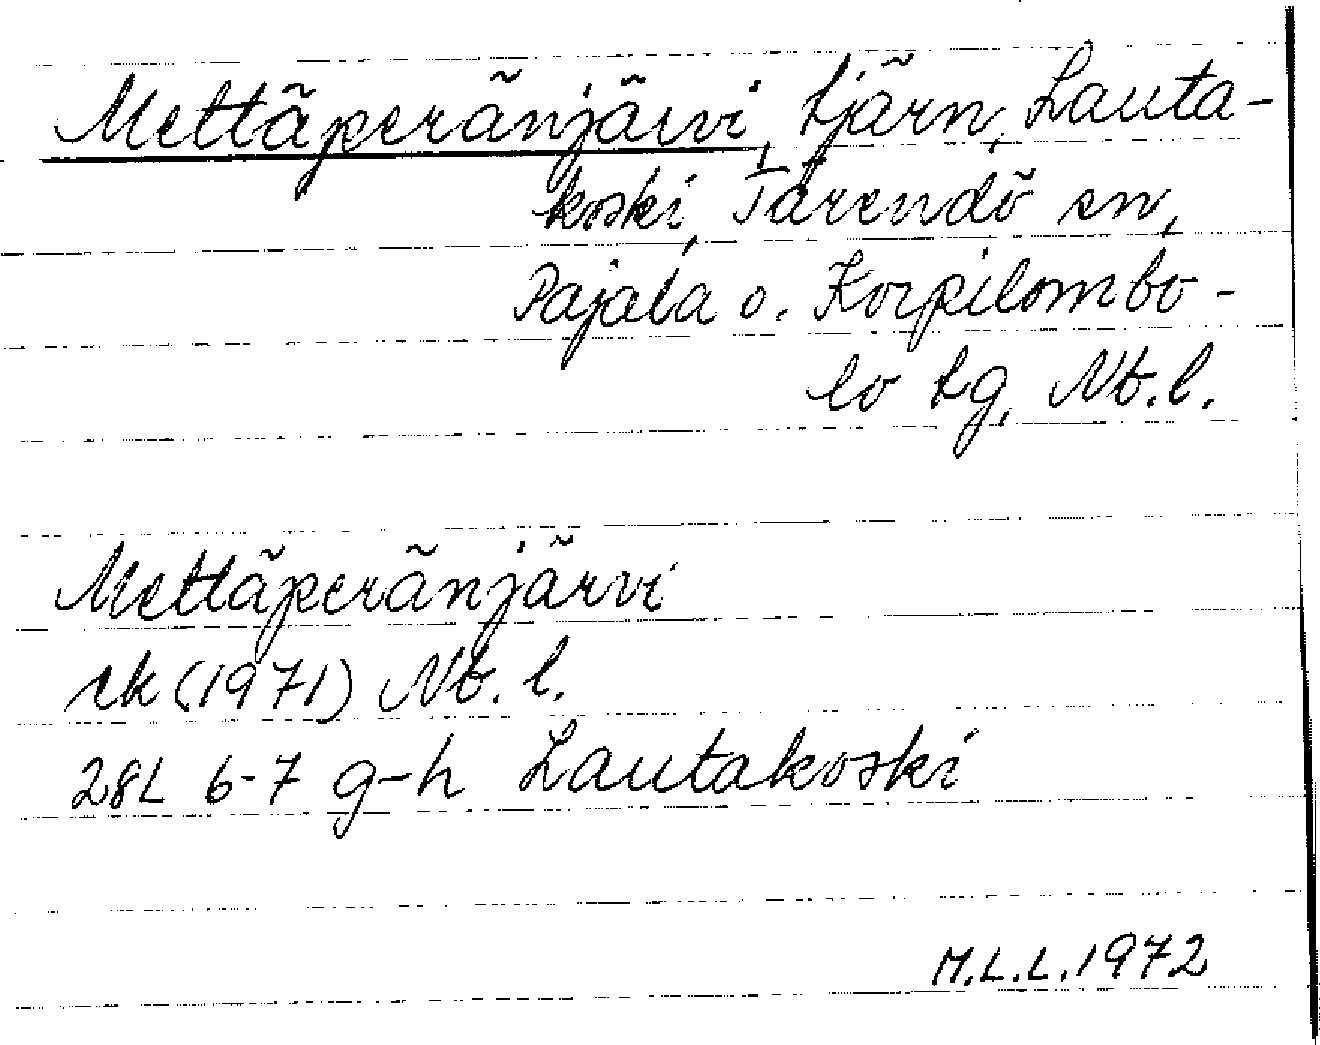 Mettäperänjärvi, tjärn, Lauta-
koski, Tärendö sn,
Pajala o. Korpilombo-
lo tg, Nb.l.
Mettäperänjärvi
ek (1971) Nb. l.
28L 6-7 g-h Lautakoski
M.L.L. 1972